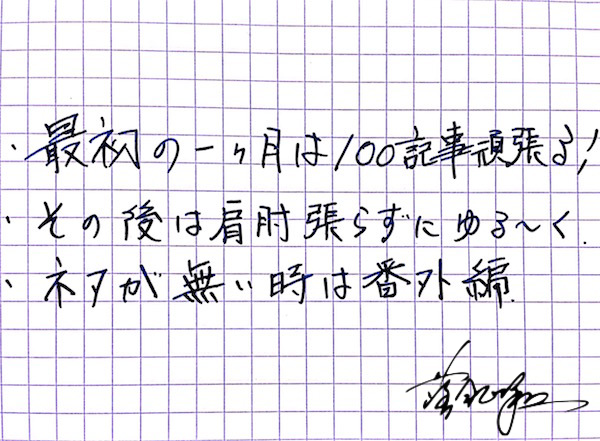 ・最初の一ヶ月は100記事頑張る!
・その後は肩肘張らずにゆる〜く.
・ネタが無い時は番外編.